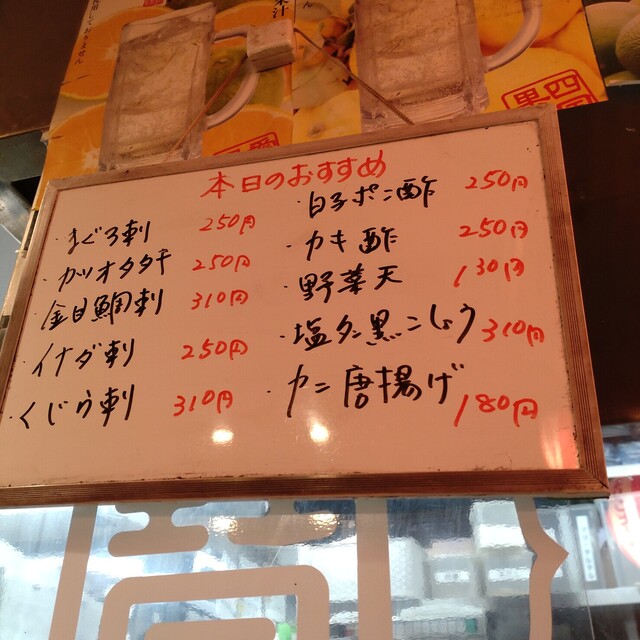 果汁
四国
本日のおすすめ
・まぐろ刺 250円
・カツオタタキ 250円
・金目鯛刺 310円
・イナダ刺 250円
・くじら刺 310円
・白子ポン酢 250円
・カキ酢 250円
・野菜天 130円
・塩タン黒こしょう 310円
・カニ唐揚げ 180円